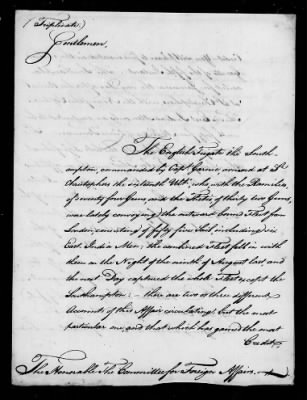 (Triplicate.)
Gentlemen,
The English Frigate the South-
ampton, commanded by Capt. Garnier, arrived at St.
Christophers the sixteenth Ulto. who with the Ramilies
of seventy four Guns and the Thetis of thirty two Guns,
was lately convoying the outward bound Fleet from
London, consisting of fifty five Sail including six
East India Men; the combined Fleet fell in with
them on the Night of the ninth of August last, and
the next Day captured the whole Fleet except the
Southampton; — there are two or three different
Accounts of this Affair circulating; but the most
particular one, and that which has gained the most
Credit,
The Honorable The Committee for Foreign Affairs.